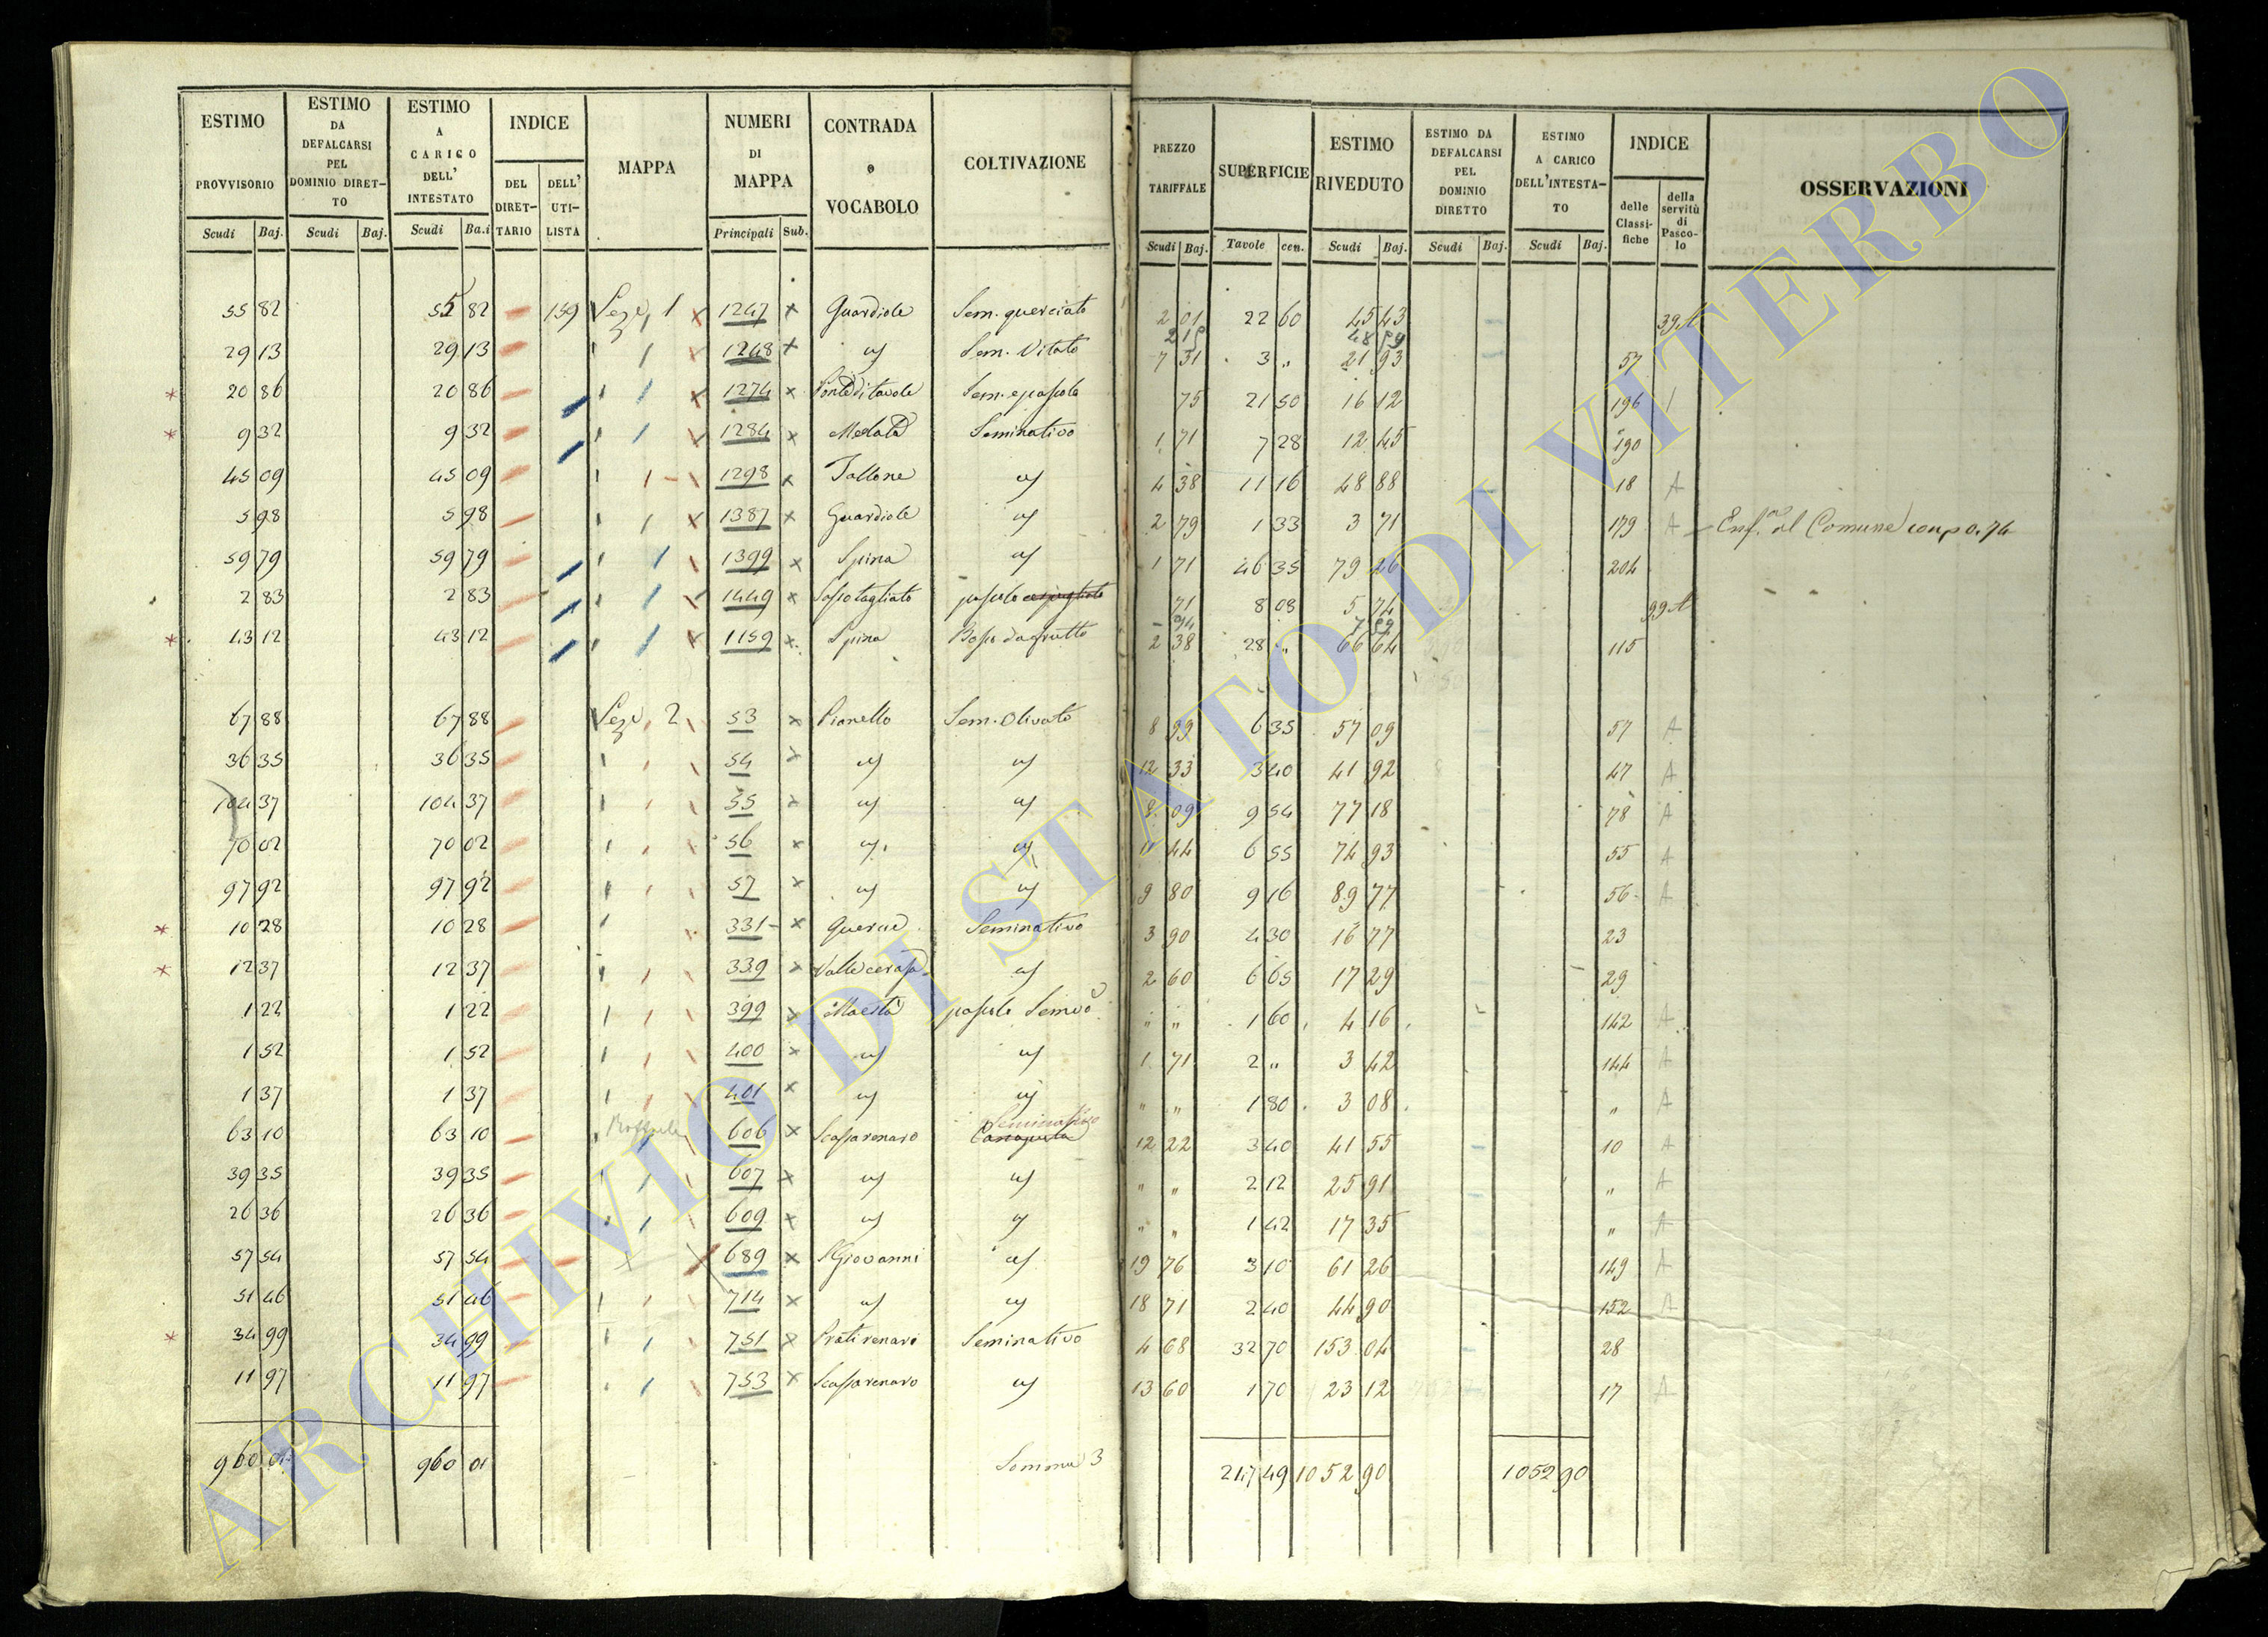 ESTIMO PROVVISORIO Scudi Baj.
ESTIMO DA DEFALCARSI PEL DOMINIO DIRETTO Scudi Baj.
ESTIMO A CARICO DELL' INTESTATO Scudi Ba.i
INDICE DEL DIRETTARIO DELL' UTILISTA
MAPPA
NUMERI DI MAPPA Principali Sub.
CONTRADA o VOCABOLO
COLTIVAZIONE
PREZZO TARIFFALE Scudi Baj.
SUPERFICIE Tavole cen.
ESTIMO RIVEDUTO Scudi Baj.
ESTIMO DA DEFALCARSI PEL DOMINIO DIRETTO Scudi Baj.
ESTIMO A CARICO DELL'INTESTATO Scudi Baj.
INDICE delle Classifiche della servitù di Pascolo
OSSERVAZIONI
55 82 55 82 159 1 1247 Guardiole Sem. querciato 2 01 22 60 45 43 39 A
2 15 48 59
29 13 29 13 1 1248 Sem. Vitato 7 31 3 " 21 93 57
20 86 20 86 1 1274 75 21 50 16 12 196 1
9 32 9 32 1 1284 Seminativo 1 71 7 28 12 45 190
45 09 45 09 1 1298 Tallone 4 38 11 16 48 88 18 A
5 98 5 98 1 1387 Guardiole 2 79 1 33 3 71 179 A al Comune
59 79 59 79 1 1399 Spina 1 71 46 35 79 26 204
2 83 2 83 1 1449 Sassotagliato pascolo 71 8 08 5 74 99 A
94 7 59
43 12 43 12 1 1159 Spina 2 38 28 " 66 64 115
67 88 67 88 2 53 Pianello Sem. Olivato 8 99 6 35 57 09 57 A
36 35 36 35 54 12 33 3 40 41 92 47 A
104 37 104 37 55 8 09 9 54 77 18 78 A
70 02 70 02 56 11 44 6 55 74 93 55 A
97 92 97 92 57 9 80 9 16 89 77 56 A
10 28 10 28 331 Quercie Seminativo 3 90 4 30 16 77 23
12 37 12 37 339 Valle cerasa 2 60 6 65 17 29 29
1 22 1 22 399 Maestà pascolo Semivo " " 1 60 4 16 142 A
1 52 1 52 400 1 71 2 " 3 42 144 A
1 37 1 37 401 " " 1 80 3 08 " A
Seminativo
63 10 63 10 606 Scassarenaro Canapula 12 22 3 40 41 55 10 A
39 35 39 35 607 " " 2 12 25 91 " A
26 36 26 36 609 " " 1 42 17 35 " A
57 54 57 54 689 S Giovanni 19 76 3 10 61 26 149 A
51 46 51 46 714 18 71 2 40 44 90 152 A
34 99 34 99 751 Prati renari Seminativo 4 68 32 70 153 04 28
11 97 11 97 753 Scassarenaro 13 60 1 70 23 12 17 A
960 01 960 01 Somma 3 247 49 1052 90 1052 90
ARCHIVIO DI STATO DI VITERBO